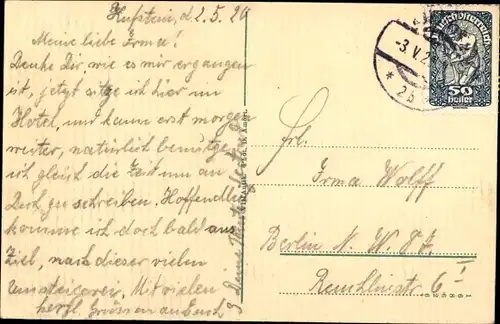 Kufstein, d 2.5.20
Meine liebe Irma!
Denke Dir, wie es mir ergangen
ist, jetzt sitze ich hier im
Hotel, und kann erst morgen
weiter, natürlich benutze
ich gleich die Zeit um an
Dich zu schreiben. Hoffendlich
komme ich doch bald aus
Ziel, nach dieser vielen
Umsteigerei. Mit vielen
herzl. Grüssen an Euch
3 Deine
Frl.
Irma Wolff
Berlin N. W. 87.
Reuchlinstr. 6 I
Deutschösterreich
50
Heller
-3.V.2
* 2b